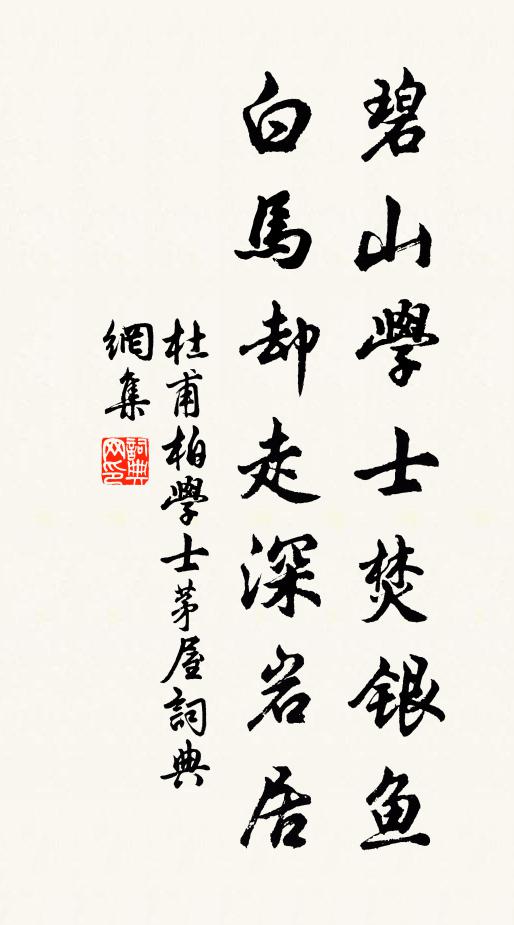 碧山學士焚銀鱼
白馬却走深岩居
杜甫柏學士茅屋詞典
網集
詞典
网印